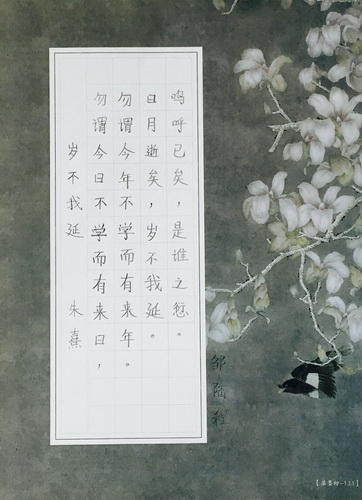 岁不我延 朱熹
勿谓今日不学而有来日，
勿谓今年不学而有来年。
日月逝矣，岁不我延。
呜呼已矣，是谁之愆。